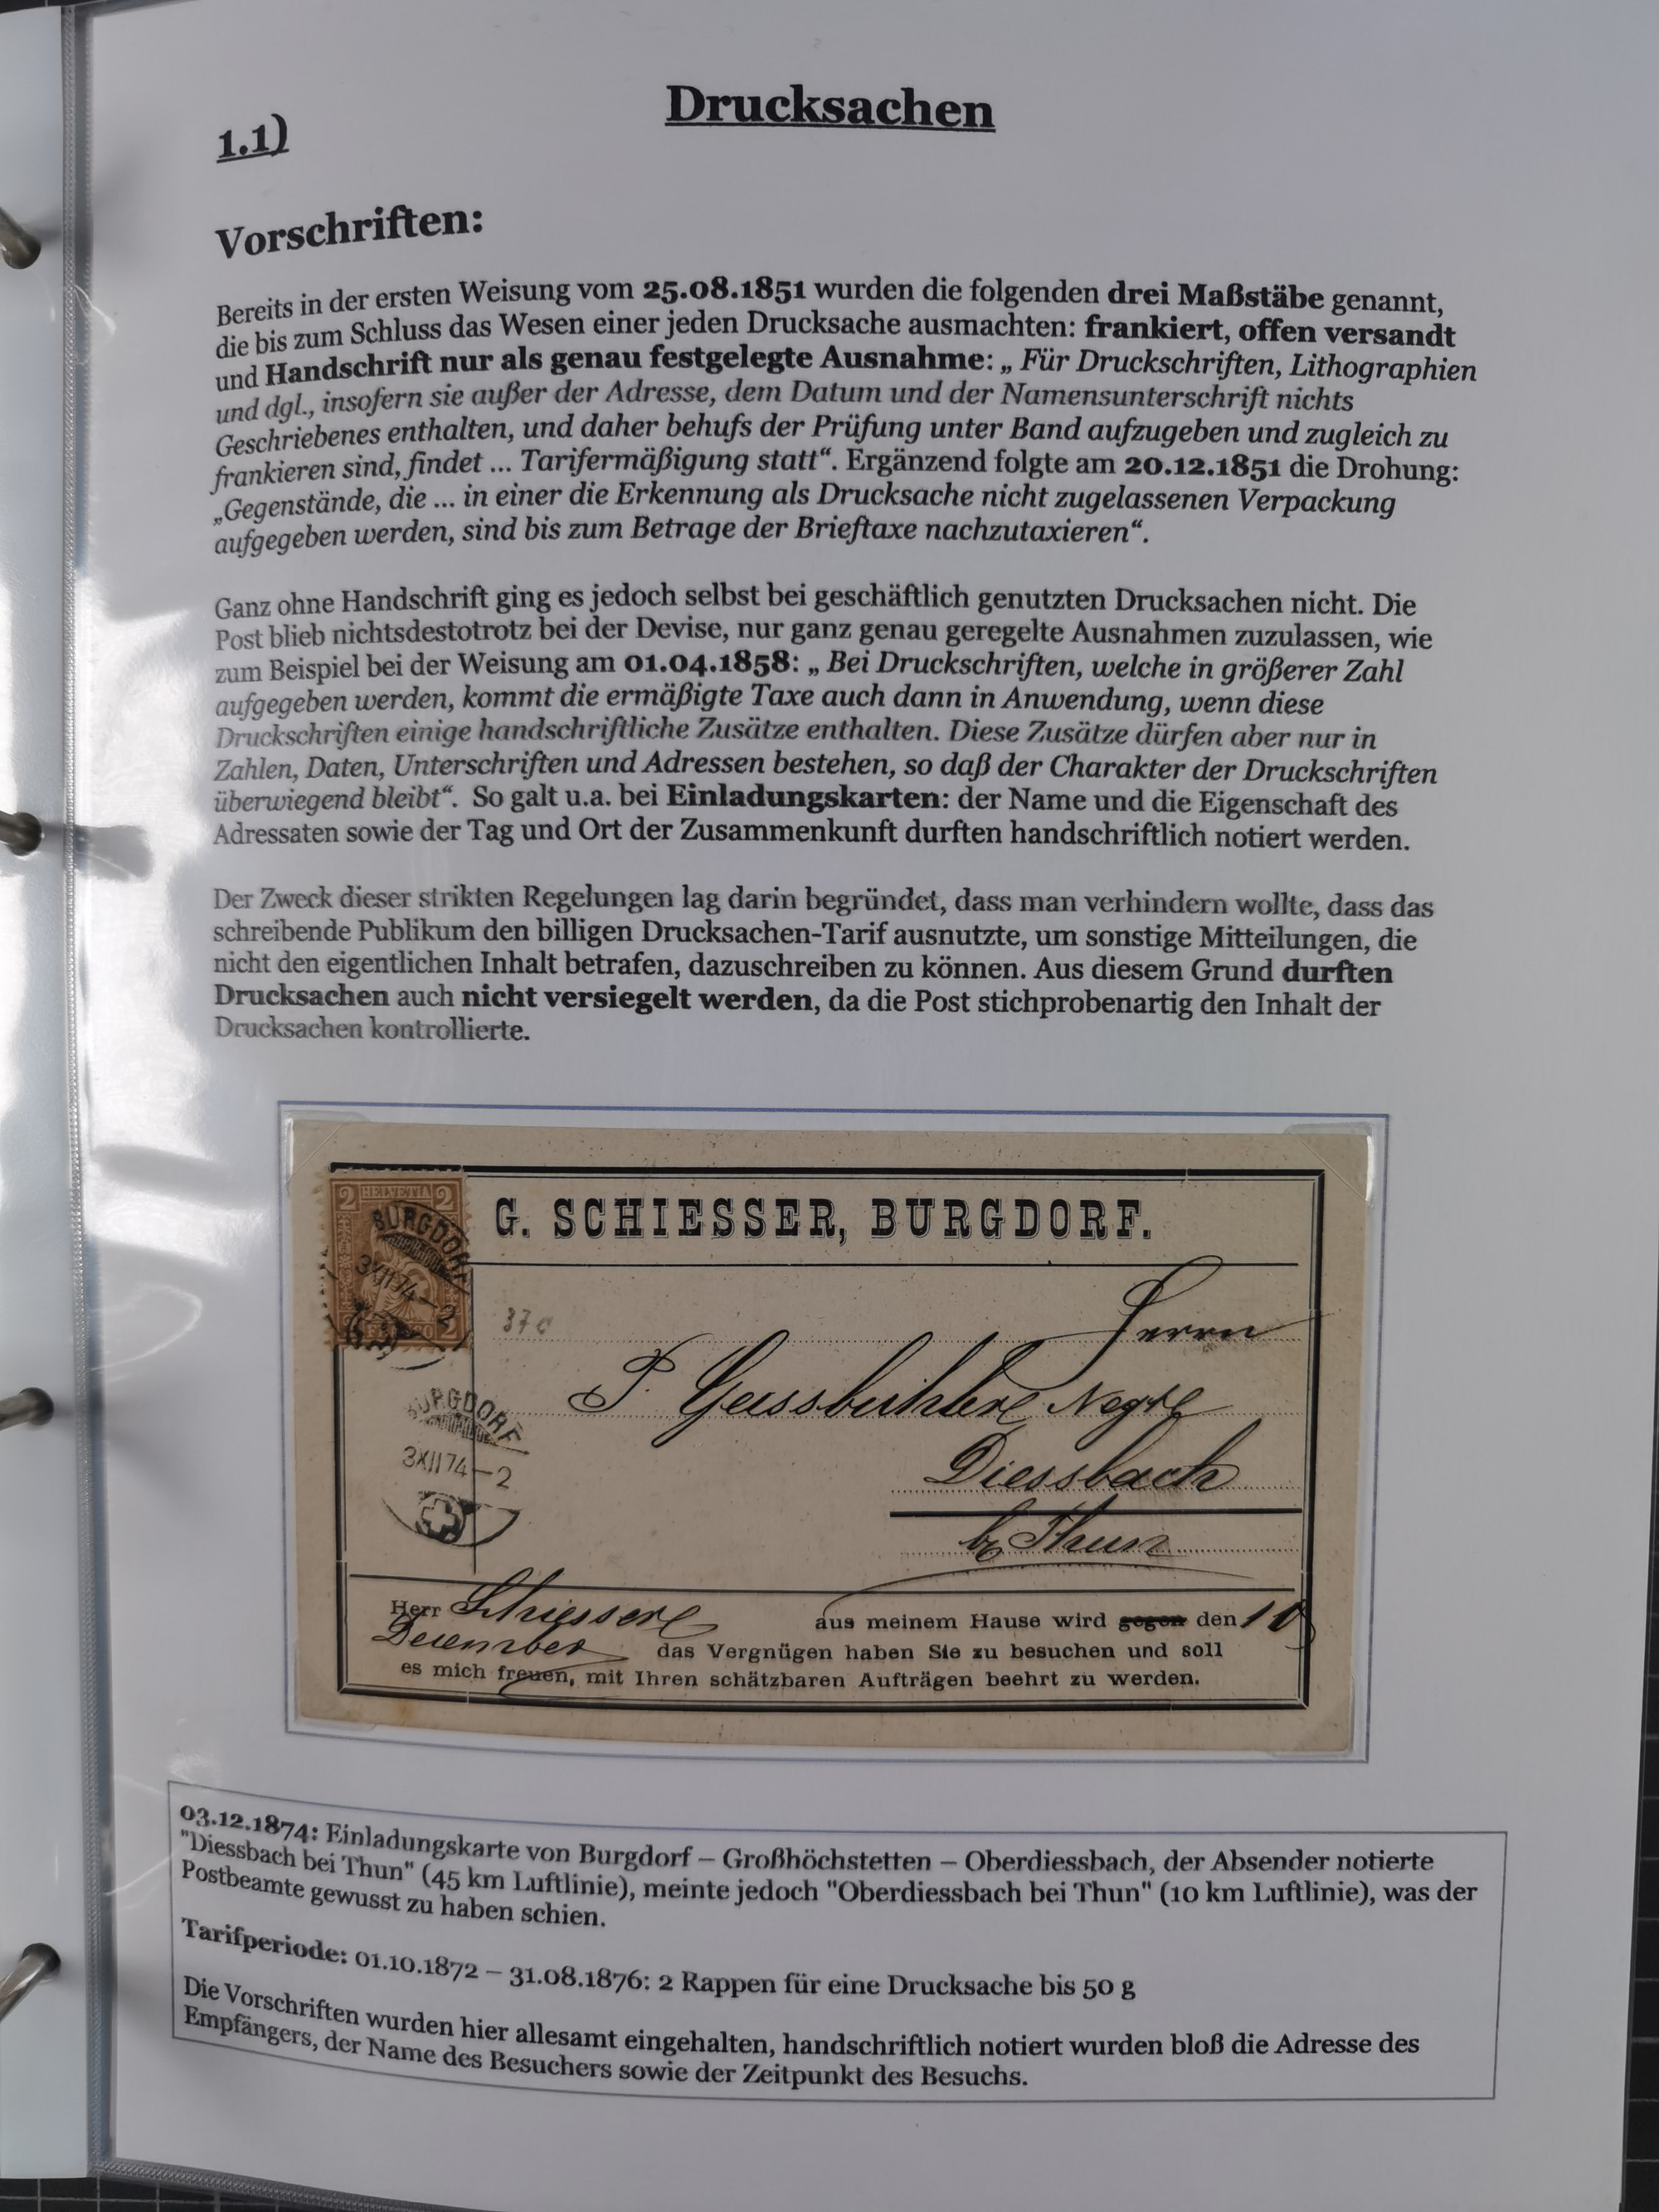 Drucksachen
1.1)
Vorschriften:
Bereits in der ersten Weisung vom 25.08.1851 wurden die folgenden drei Maßstäbe genannt,
die bis zum Schluss das Wesen einer jeden Drucksache ausmachten: frankiert, offen versandt
und Handschrift nur als genau festgelegte Ausnahme: „ Für Druckschriften, Lithographien
und dgl., insofern sie außer der Adresse, dem Datum und der Namensunterschrift nichts
Geschriebenes enthalten, und daher behufs der Prüfung unter Band aufzugeben und zugleich zu
frankieren sind, findet ... Tarifermäßigung statt“. Ergänzend folgte am 20.12.1851 die Drohung:
„Gegenstände, die ... in einer die Erkennung als Drucksache nicht zugelassenen Verpackung
aufgegeben werden, sind bis zum Betrage der Brieftaxe nachzutaxieren“.
Ganz ohne Handschrift ging es jedoch selbst bei geschäftlich genutzten Drucksachen nicht. Die
Post blieb nichtsdestotrotz bei der Devise, nur ganz genau geregelte Ausnahmen zuzulassen, wie
zum Beispiel bei der Weisung am 01.04.1858: „ Bei Druckschriften, welche in größerer Zahl
aufgegeben werden, kommt die ermäßigte Taxe auch dann in Anwendung, wenn diese
Druckschriften einige handschriftliche Zusätze enthalten. Diese Zusätze dürfen aber nur in
Zahlen, Daten, Unterschriften und Adressen bestehen, so daß der Charakter der Druckschriften
überwiegend bleibt“. So galt u.a. bei Einladungskarten: der Name und die Eigenschaft des
Adressaten sowie der Tag und Ort der Zusammenkunft durften handschriftlich notiert werden.
Der Zweck dieser strikten Regelungen lag darin begründet, dass man verhindern wollte, dass das
schreibende Publikum den billigen Drucksachen-Tarif ausnutzte, um sonstige Mitteilungen, die
nicht den eigentlichen Inhalt betrafen, dazuschreiben zu können. Aus diesem Grund durften
Drucksachen auch nicht versiegelt werden, da die Post stichprobenartig den Inhalt der
Drucksachen kontrollierte.
2 HELVETIA 2
BURGDORF
3XII74-2
G. SCHIESSER, BURGDORF.
37c
Herrn
P. Geissbühler Negt
Diessbach
b/ Thun
BURGDORF
3XII74-2
Herr Schiesser aus meinem Hause wird gegen den 10
December das Vergnügen haben Sie zu besuchen und soll
es mich freuen, mit Ihren schätzbaren Aufträgen beehrt zu werden.
03.12.1874: Einladungskarte von Burgdorf – Großhöchstetten – Oberdiessbach, der Absender notierte
"Diessbach bei Thun" (45 km Luftlinie), meinte jedoch "Oberdiessbach bei Thun" (10 km Luftlinie), was der
Postbeamte gewusst zu haben schien.
Tarifperiode: 01.10.1872 – 31.08.1876: 2 Rappen für eine Drucksache bis 50 g
Die Vorschriften wurden hier allesamt eingehalten, handschriftlich notiert wurden bloß die Adresse des
Empfängers, der Name des Besuchers sowie der Zeitpunkt des Besuchs.